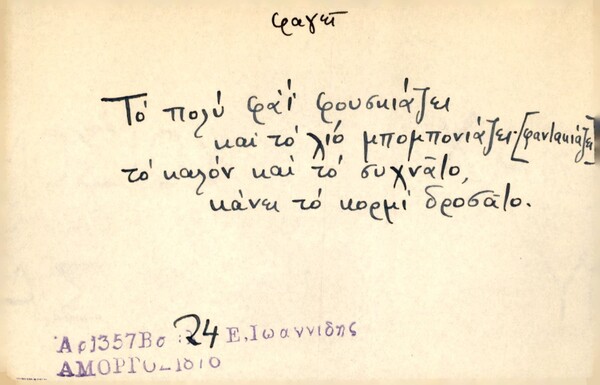 φαγεῖ
Τό πολύ φάϊ φουσκιάζει
καί τό λιό μπομπονιάζει-[φαντακιάζει
τό καλόν καί τό συχνᾶτο,
κάνει τό κορμί δροσᾶτο.
Αρ1357Βσ 24 Ε, Ιωαννιδης
ΑΜΟΡΓΟΣ 1876